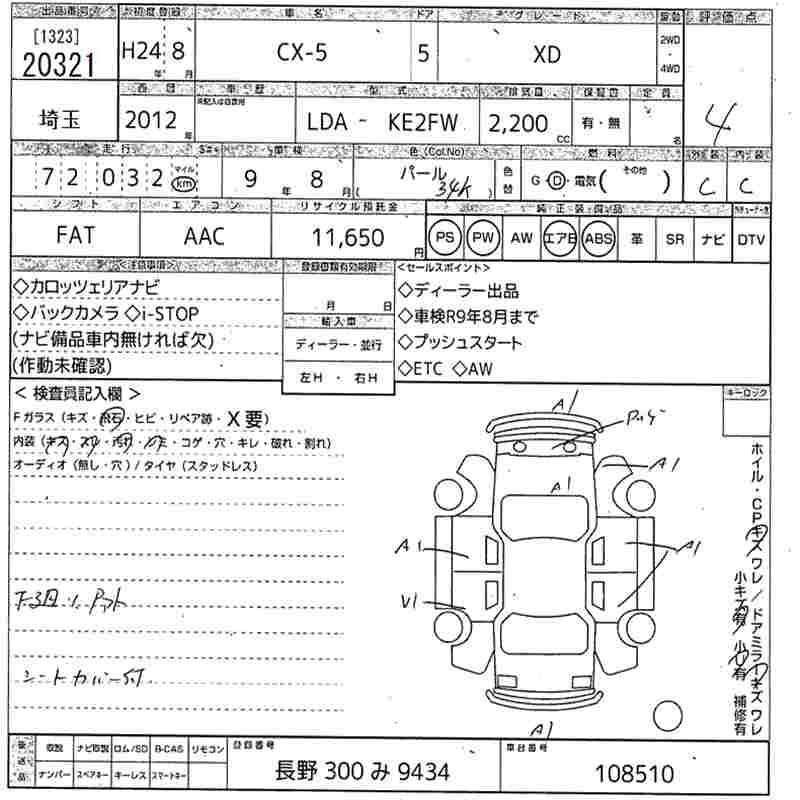 出品車両 初度登録 車名 ドア グレード 駆動 評価点
[1323]
20321 H24年 8月 CX-5 5 XD 2WD・4WD
西暦 車歴 型式 排気量 保証書 定員
未記入は自家用
埼玉 2012年 LDA - KE2FW 2,200 CC 有・無 名 4
走行 車検 色(Col.No) 燃料 外装 内装
72,032 マイル km 9年 8月 パール 34K 色替 G・D・電気(その他) C C
シフト エアコン リサイクル預託金 純正装備品
FAT AAC 11,650円 PS PW AW エアB ABS 革 SR ナビ DTV
<注意事項> 登録書類有効期限 <セールスポイント>
◇カロッツェリアナビ ◇ディーラー出品
◇バックカメラ ◇i-STOP 月 日 ◇車検R9年8月まで
(ナビ備品車内無ければ欠) 輸入車 ◇プッシュスタート
ディーラー・並行
(作動未確認) 左H・右H ◇ETC ◇AW
<検査員記入欄> キーロック
Fガラス(キズ・飛石・ヒビ・リペア跡・X要)
内装(キズ・スレ・汚れ・シミ・コゲ・穴・キレ・破れ・割れ)
オーディオ(無し・穴)/タイヤ(スタッドレス)
A1
A1
A1
A1
A1
V1
A1
シートカバー付
ホイル・CPキズワレ/ドアミラーキズワレ
小キズ有/小凹有 補修有
後送品 取説 ナビ取説 ロム/SD B-CAS リモコン 登録番号 車台番号
ナンバー スペアキー キーレス スマートキー 長野 300 み 9434 108510